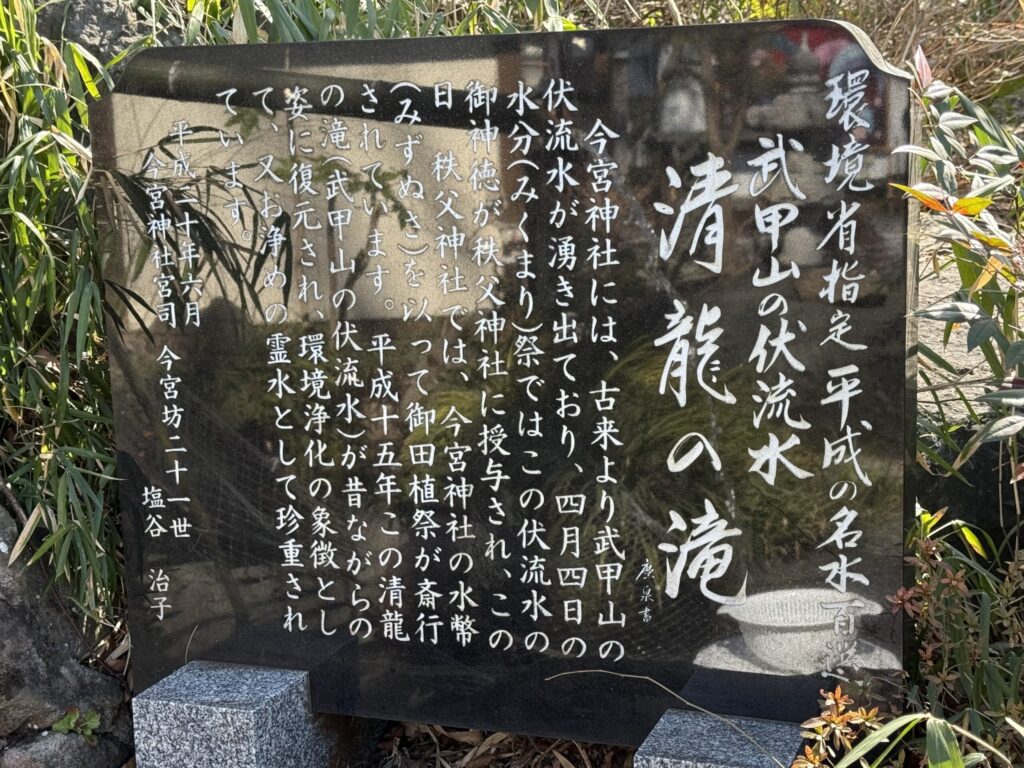 環境省指定平成の名水百選
武甲山の伏流水
清龍の滝
廣泉書
今宮神社には、古来より武甲山の
伏流水が湧き出ており、四月四日の
水分(みくまり)祭ではこの伏流水の
御神徳が秩父神社に授与され、この
日 秩父神社では、今宮神社の水幣
(みずぬさ)を以って御田植祭が斎行
されています。平成十五年この清龍
の滝(武甲山の伏流水)が昔ながらの
姿に復元され、環境浄化の象徴とし
て、又お浄めの霊水として珍重され
ています。
平成二十年六月
今宮神社宮司 今宮坊二十一世
塩谷 治子